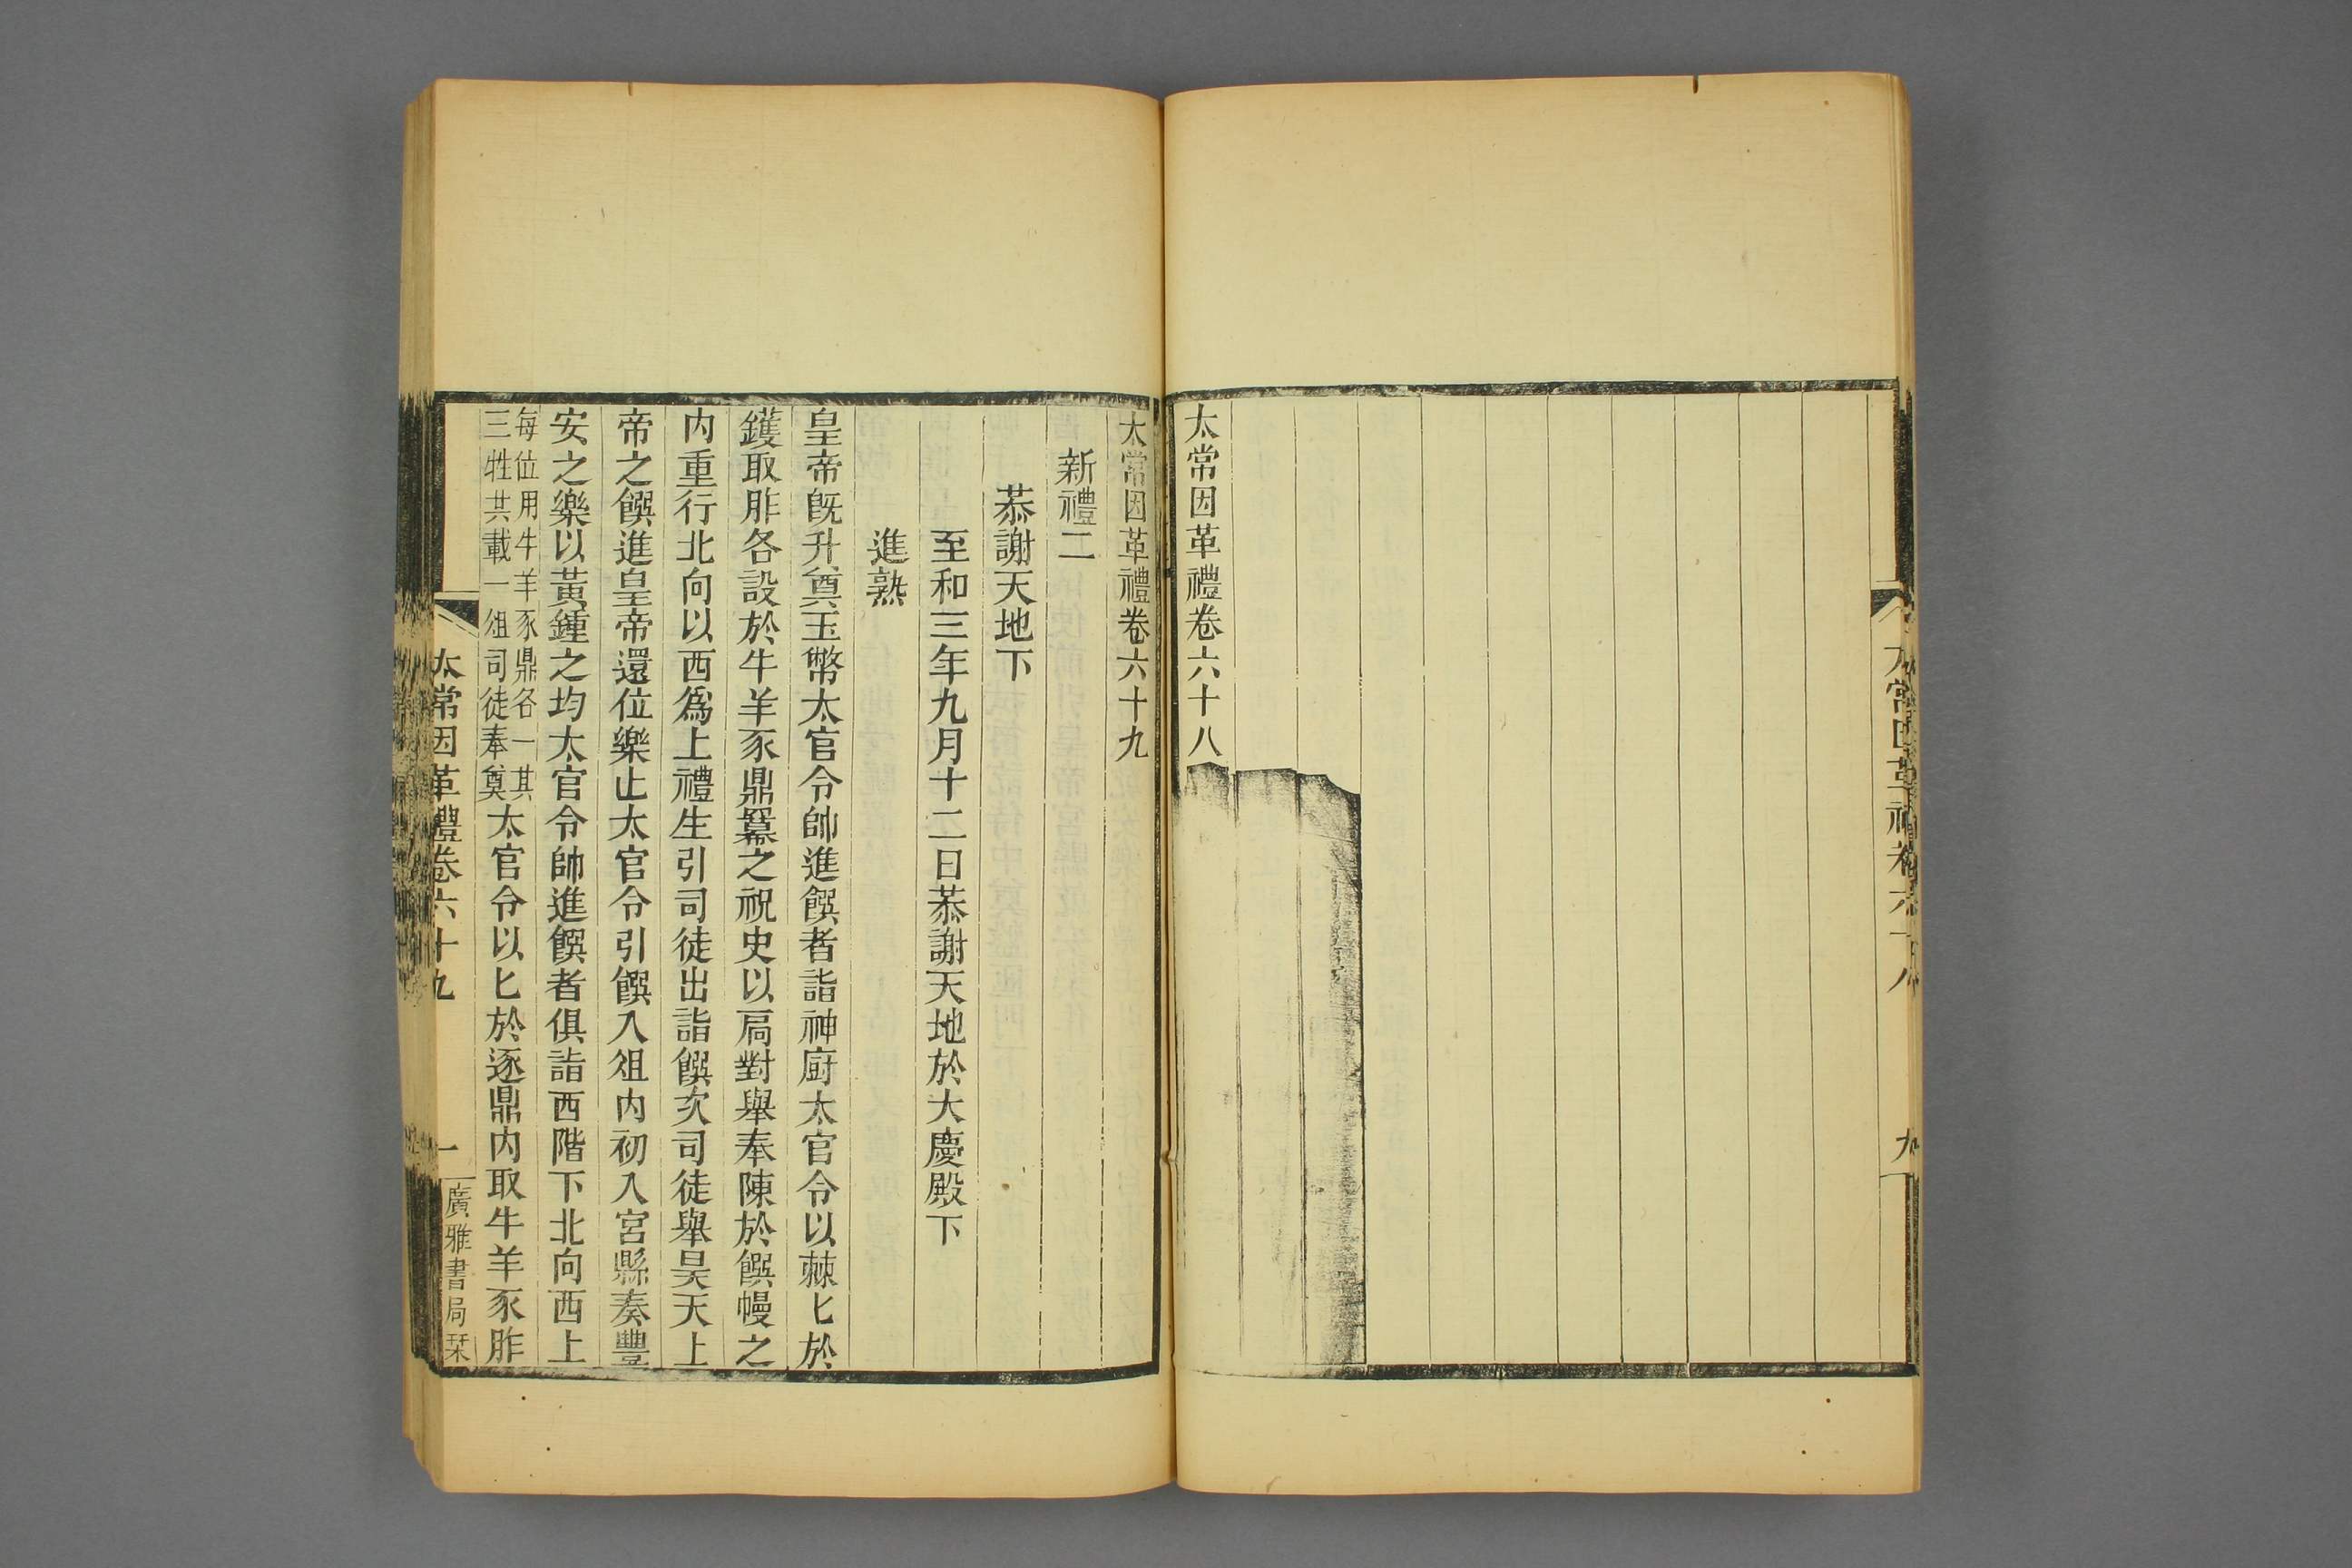 太常因革禮卷六十八
九
太常因革禮卷六十八
太常因革禮卷六十九
新禮二
恭謝天地下
至和三年九月十二日恭謝天地於大慶殿下
進熟
皇帝旣升奠玉幣太官令帥進饌者詣神廚太官令以棘匕於
鑊取胙各設於牛羊豕鼎羃之祝史以扃對舉奉陳於饌幔之
內重行北向以西爲上禮生引司徒出詣饌次司徒舉昊天上
帝之饌進皇帝還位樂止太官令引饌入俎內初入宮縣奏豐
安之樂以黃鍾之均太官令帥進饌者俱詣西階下北向西上
每位用牛羊豕鼎各一其
三牲共載一俎司徒奉奠
太官令以匕於逐鼎內取牛羊豕胙
太常因革禮卷六十九
一
廣雅書局栞